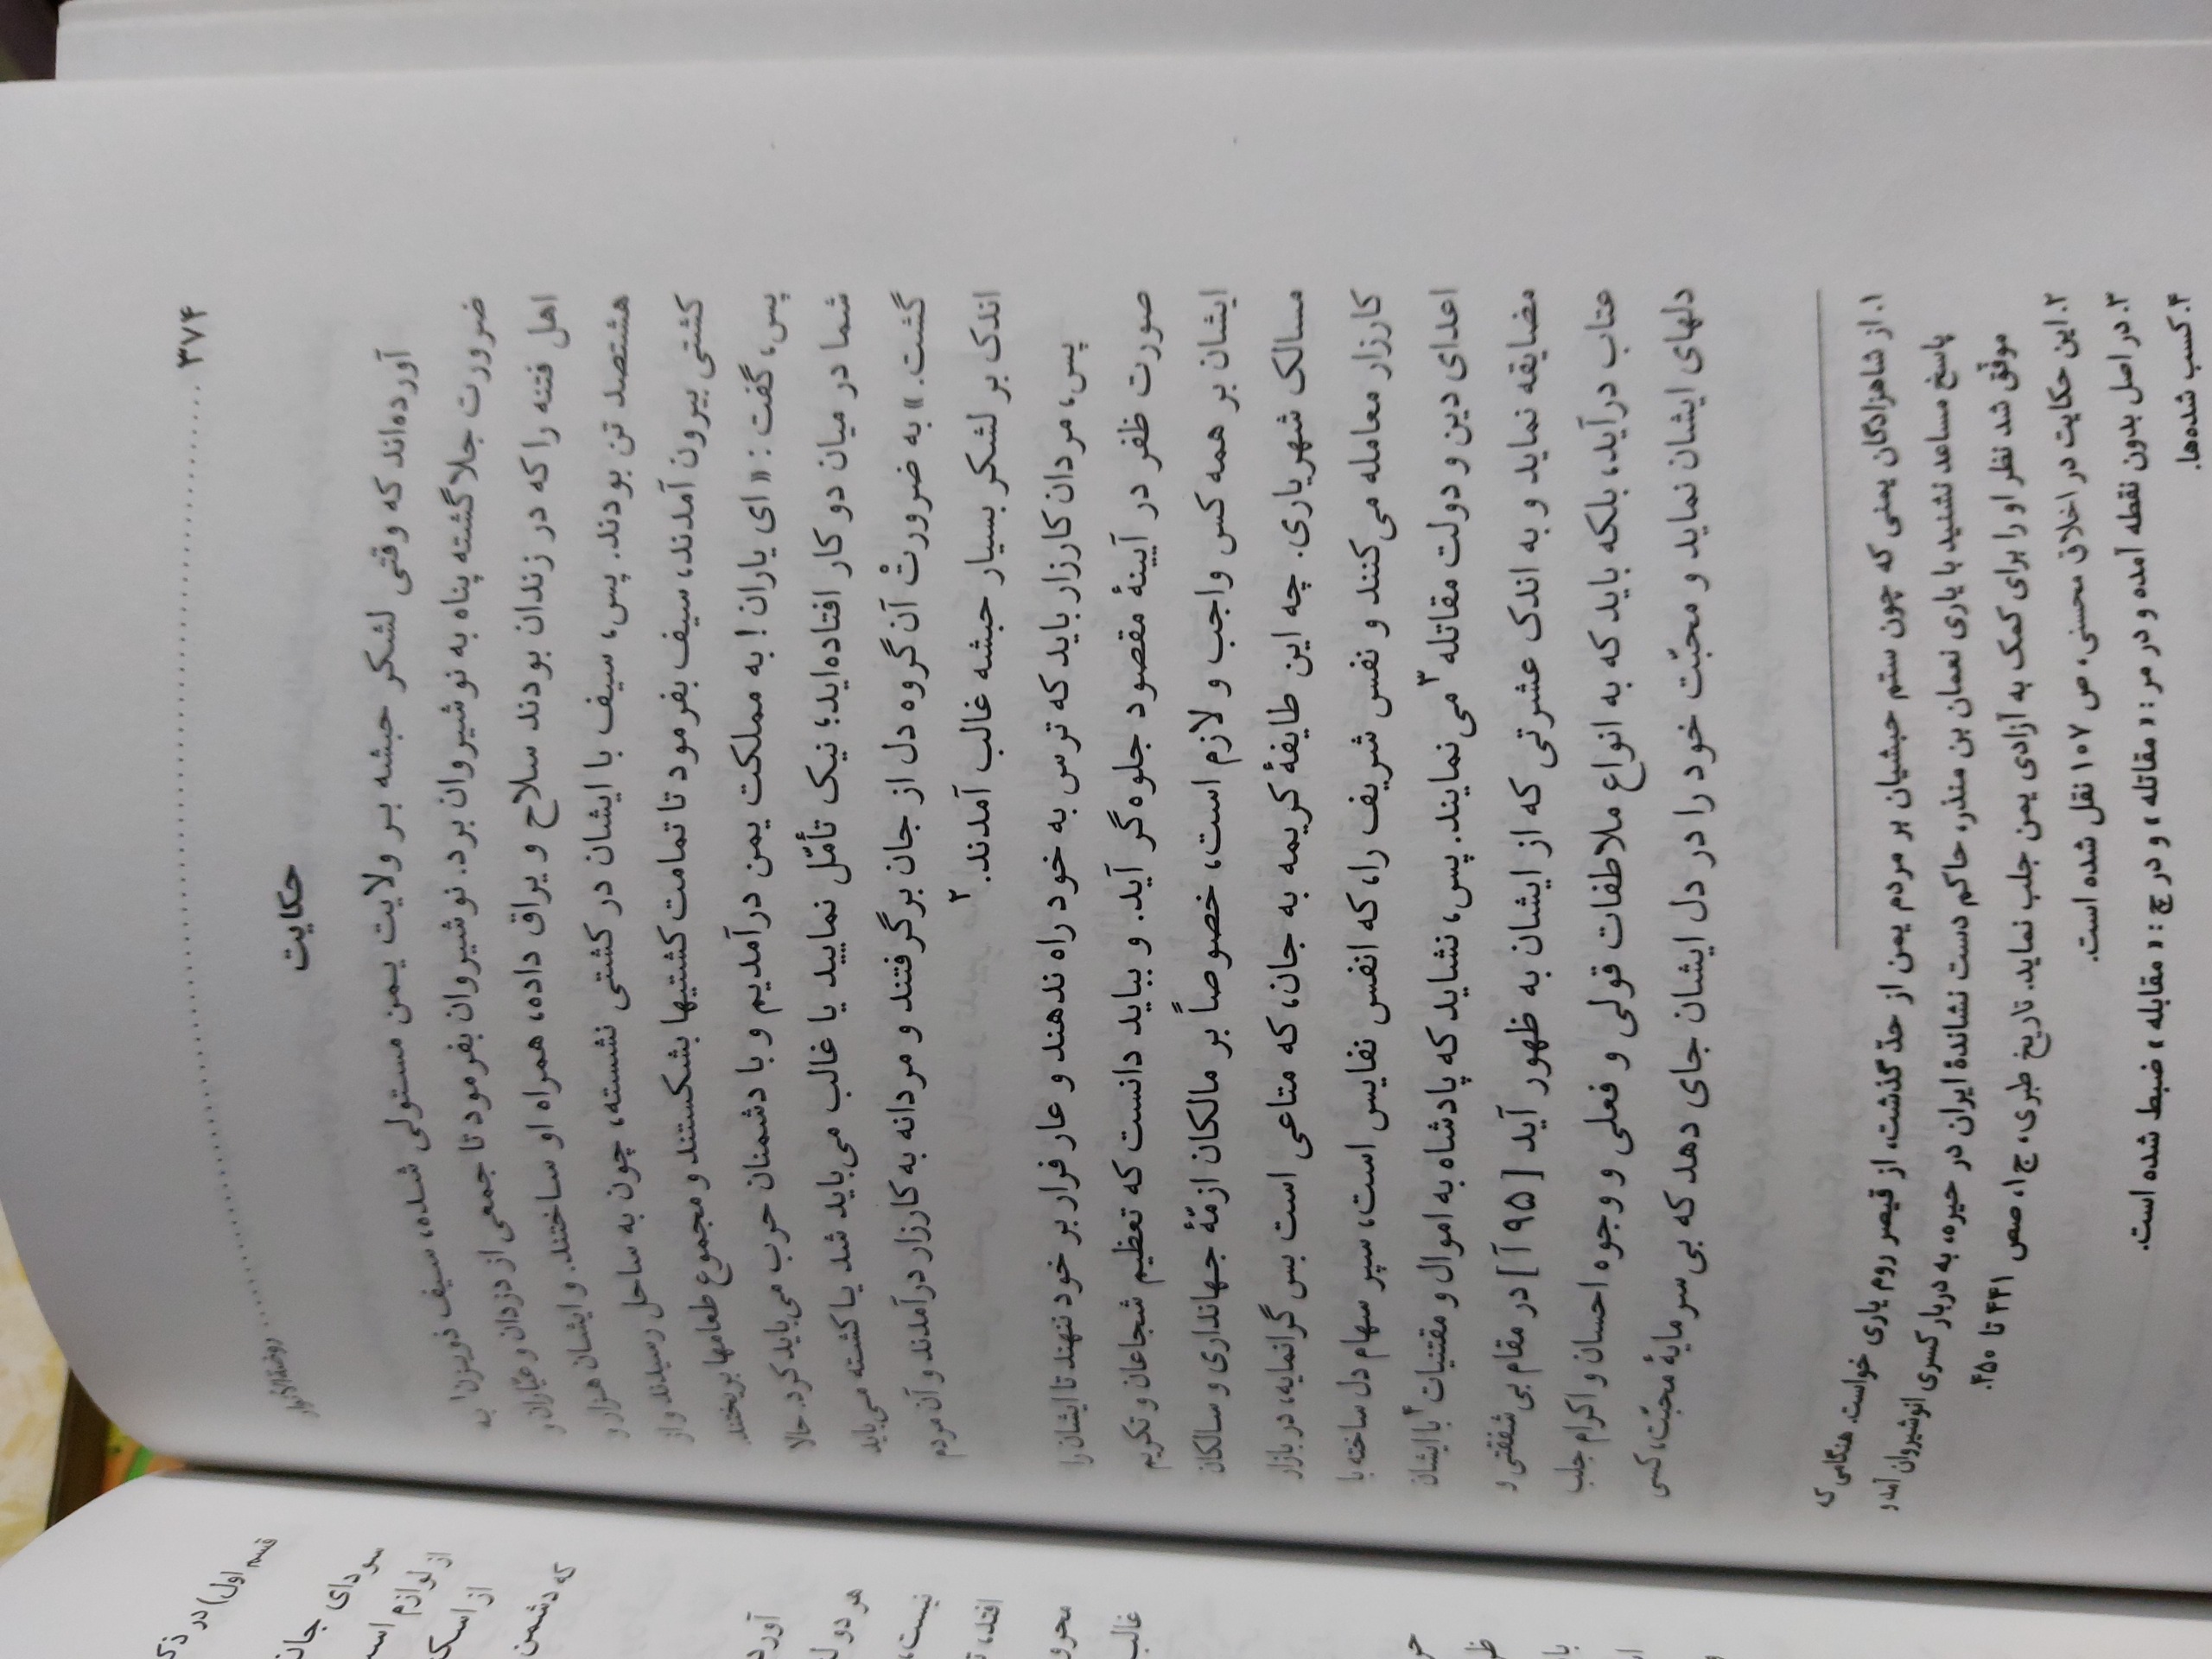 ۳۷۴ ................................................ روضةالانوار
حکایت
آورده‌اند که وقتی لشکر حبشه بر ولایت یمن مستولی شده، سیف ذویزن۱ به
ضرورت جلا گشته پناه به نوشیروان برد. نوشیروان بفرمود تا جمعی از دزدان و عیّاران و
اهل فتنه را که در زندان بودند سلاح و یراق داده، همراه او ساختند. و ایشان هزار و
هشتصد تن بودند. پس، سیف با ایشان در کشتی نشسته، چون به ساحل رسیدند و از
کشتی بیرون آمدند، سیف بفرمود تا تمامت کشتیها بشکستند و مجموع طعامها بریختند.
پس، گفت: «ای یاران! به مملکت یمن درآمدیم و با دشمنان حرب می‌باید کرد. حالا
شما در میان دو کار افتاده‌اید؛ نیک تأمّل نمایید یا غالب می‌باید شد یا کشته می‌باید
گشت.» به ضرورتْ آن گروه دل از جان برگرفتند و مردانه به کارزار درآمدند و آن مردم
اندک بر لشکر بسیار حبشه غالب آمدند.۲
پس، مردان کارزار باید که ترس به خود راه ندهند و عار فرار بر خود ننهند تا ایشان را
صورت ظفر در آیینهٔ مقصود جلوه‌گر آید. و بباید دانست که تعظیم شجاعان و تکریم
ایشان بر همه کس واجب و لازم است، خصوصاً بر مالکان ازمّهٔ جهانداری و سالکان
مسالک شهریاری. چه این طایفهٔ کریمه به جان، که متاعی است بس گرانمایه، در بازار
کارزار معامله می‌کنند و نفس شریف را، که انفس نفایس است، سپر سهام دل ساخته با
اعدای دین و دولت مقاتله۳ می‌نمایند. پس، نشاید که پادشاه به اموال و مقتنیات۴ با ایشان
مضایقه نماید و به اندک عشرتی که از ایشان به ظهور آید [۹۵آ] در مقام بی‌شفقتی و
عتاب درآید، بلکه باید که به انواع ملاطفات قولی و فعلی و وجوه احسان و اکرام جلب
دلهای ایشان نماید و محبّت خود را در دل ایشان جای دهد که بی‌سرمایهٔ محبّت، کسی
۱. از شاهزادگان یمنی که چون ستم حبشیان بر مردم یمن از حدّ گذشت، از قیصر روم یاری خواست. هنگامی که
پاسخ مساعد نشنید با یاری نعمان بن منذر، حاکم دست نشاندهٔ ایران در حیره، به دربار کسری انوشیروان آمد و
موفّق شد نظر او را برای کمک به آزادی یمن جلب نماید. تاریخ طبری، ج۱، صص ۴۴۱ تا ۴۵۰.
۲. این حکایت در اخلاق محسنی، ص ۱۰۷ نقل شده است.
۳. در اصل بدون نقطه آمده و در مر: «مقاتله» و در چ: «مقابله» ضبط شده است.
۴. کسب شده‌ها.
قسم اول) در ذکر
سودای جان
از لوازم
از
که دشمن
آورد
هر دو
نیست،
افتد،
محرو
غالب